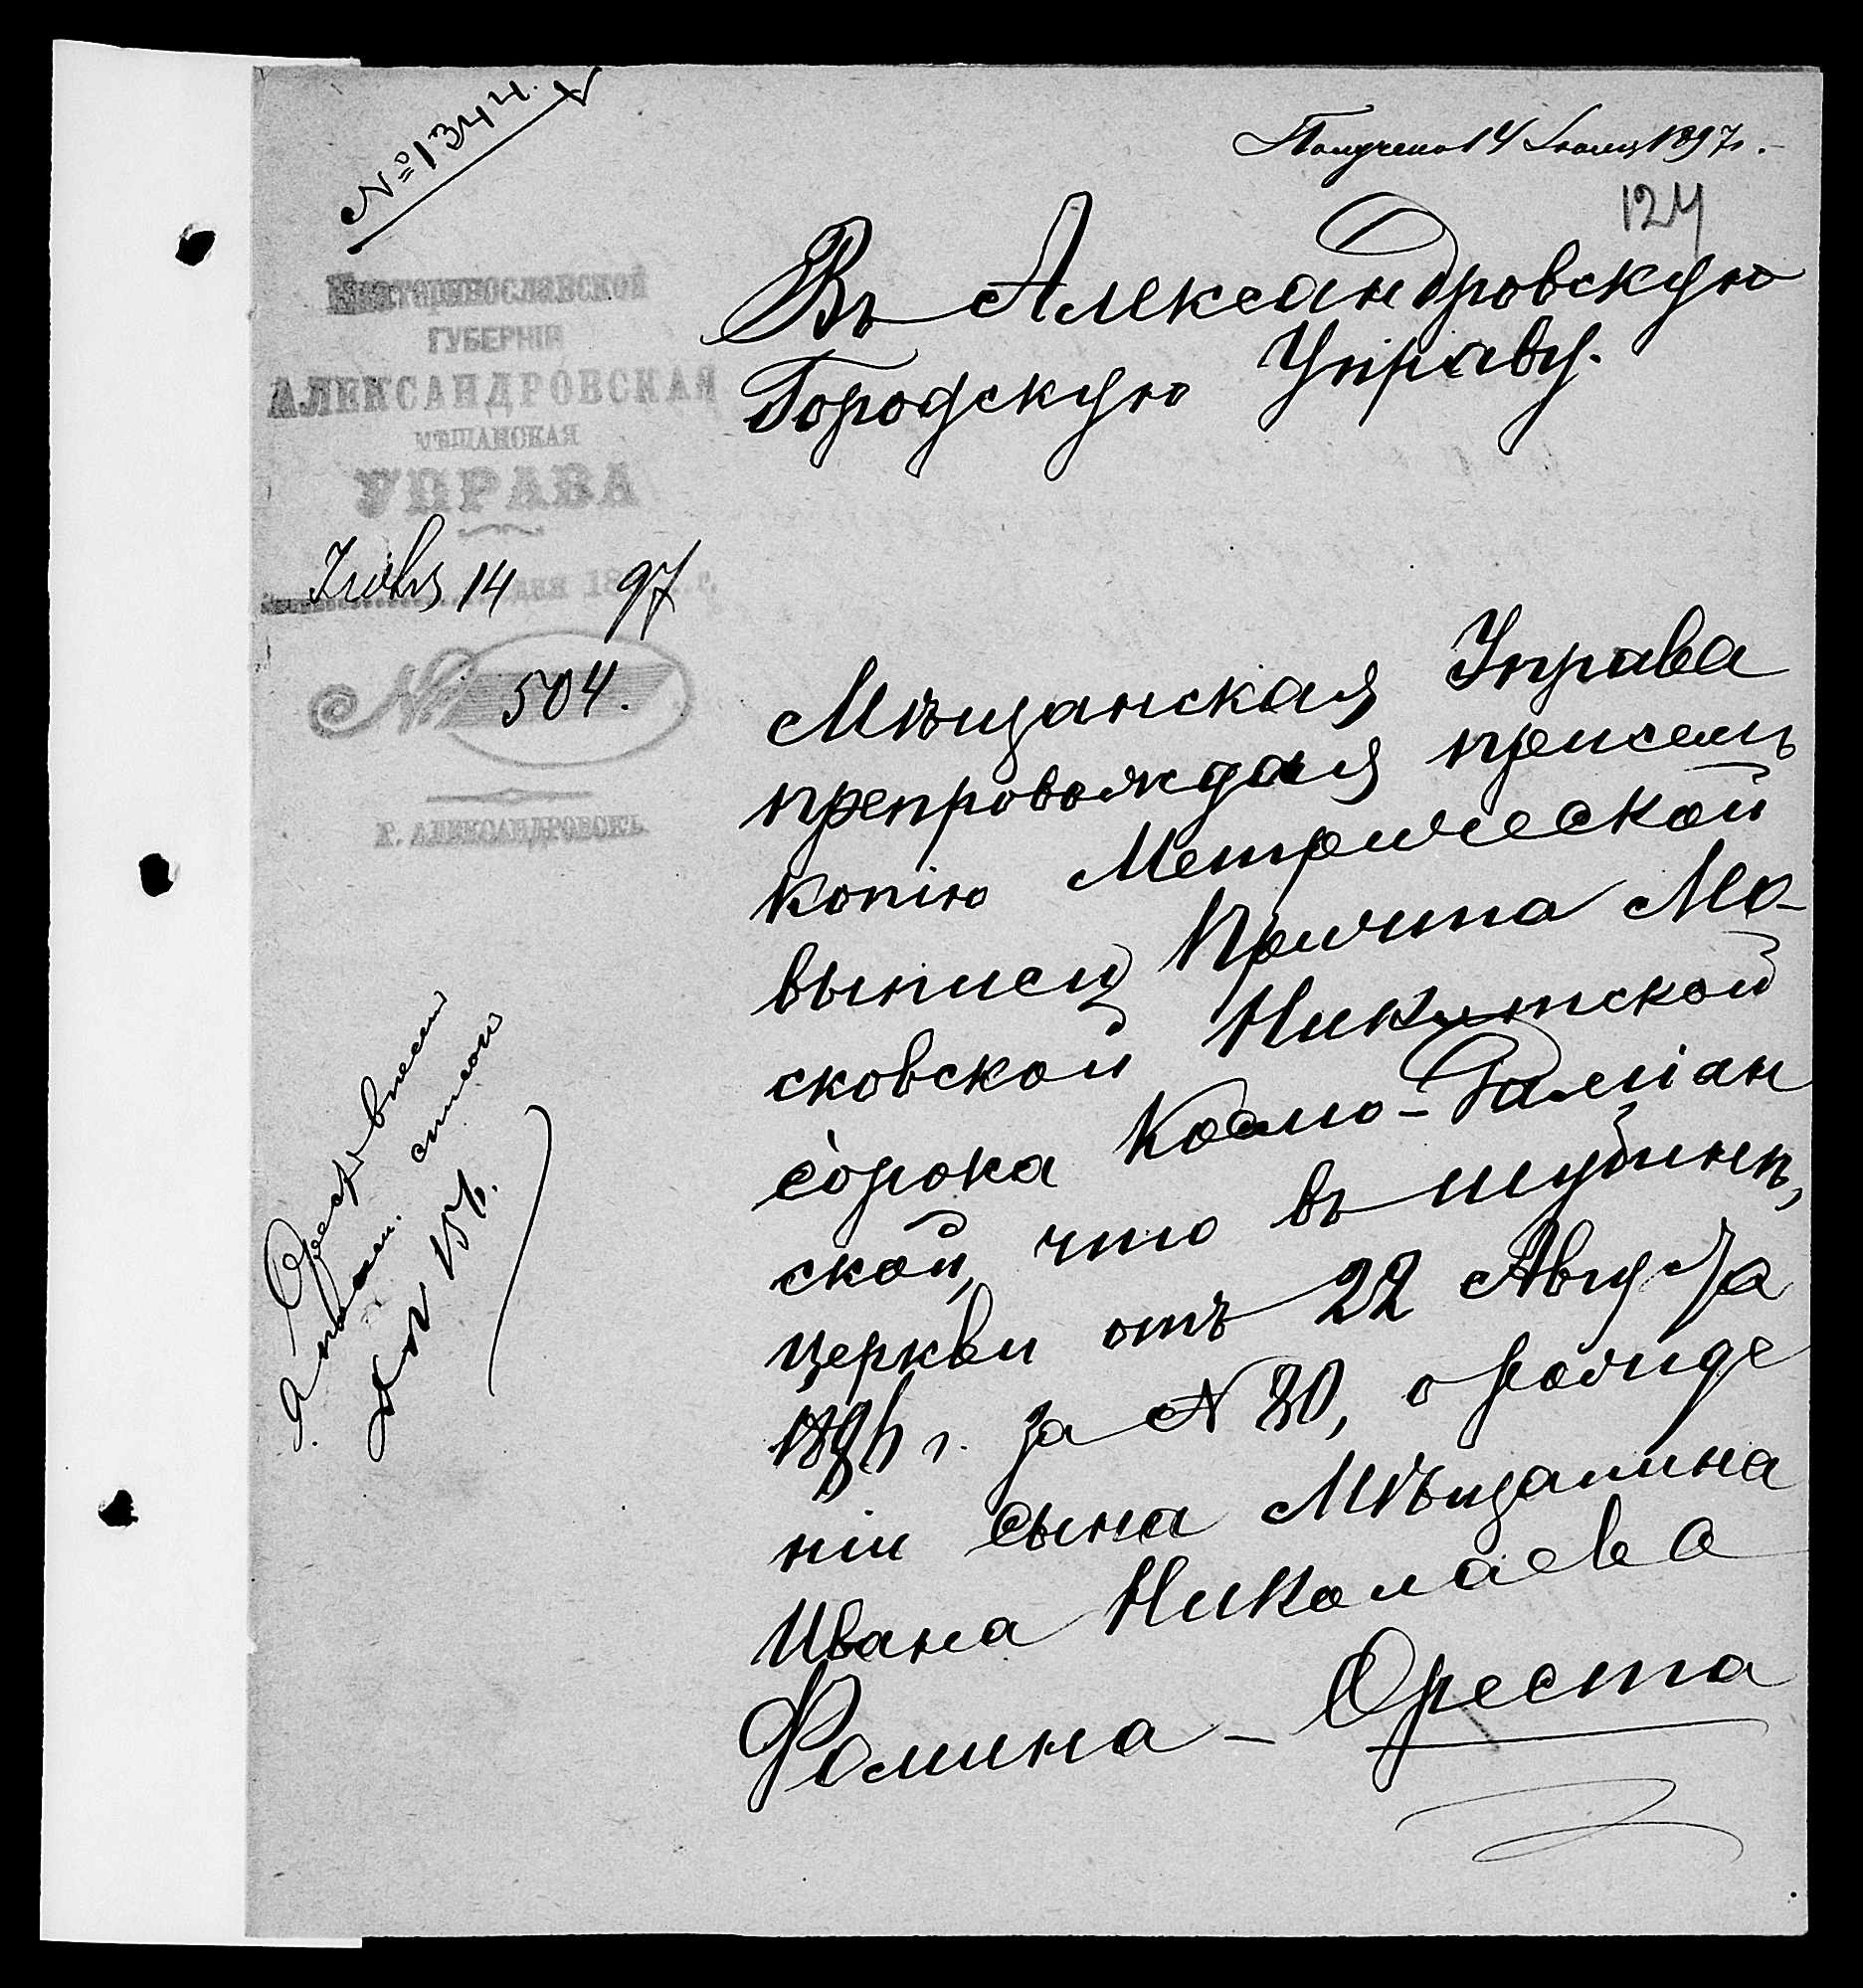 № 1344.
Получено 14 Іюля 1897 г.
124
Екатеринославской
ГУБЕРНІИ
АЛЕКСАНДРОВСКАЯ
МѢЩАНСКАЯ
УПРАВА
Іюля 14 дня 1897 г.
№ 504.
Г. АЛЕКСАНДРОВСКЪ
Въ Александровскую
Городскую Управу.
Мѣщанская Управа
препровождая присемъ
копію Метрической
выписи Причта Мо-
сковской Никитской
сорока Космо-Даміан
ской, что въ Шубинѣ,
церкви отъ 22 Августа
г. за № 30, о рожде
ніи сына Мѣщанина
Ивана Николаева
Фомина - Ореста
Орестъ внесенъ